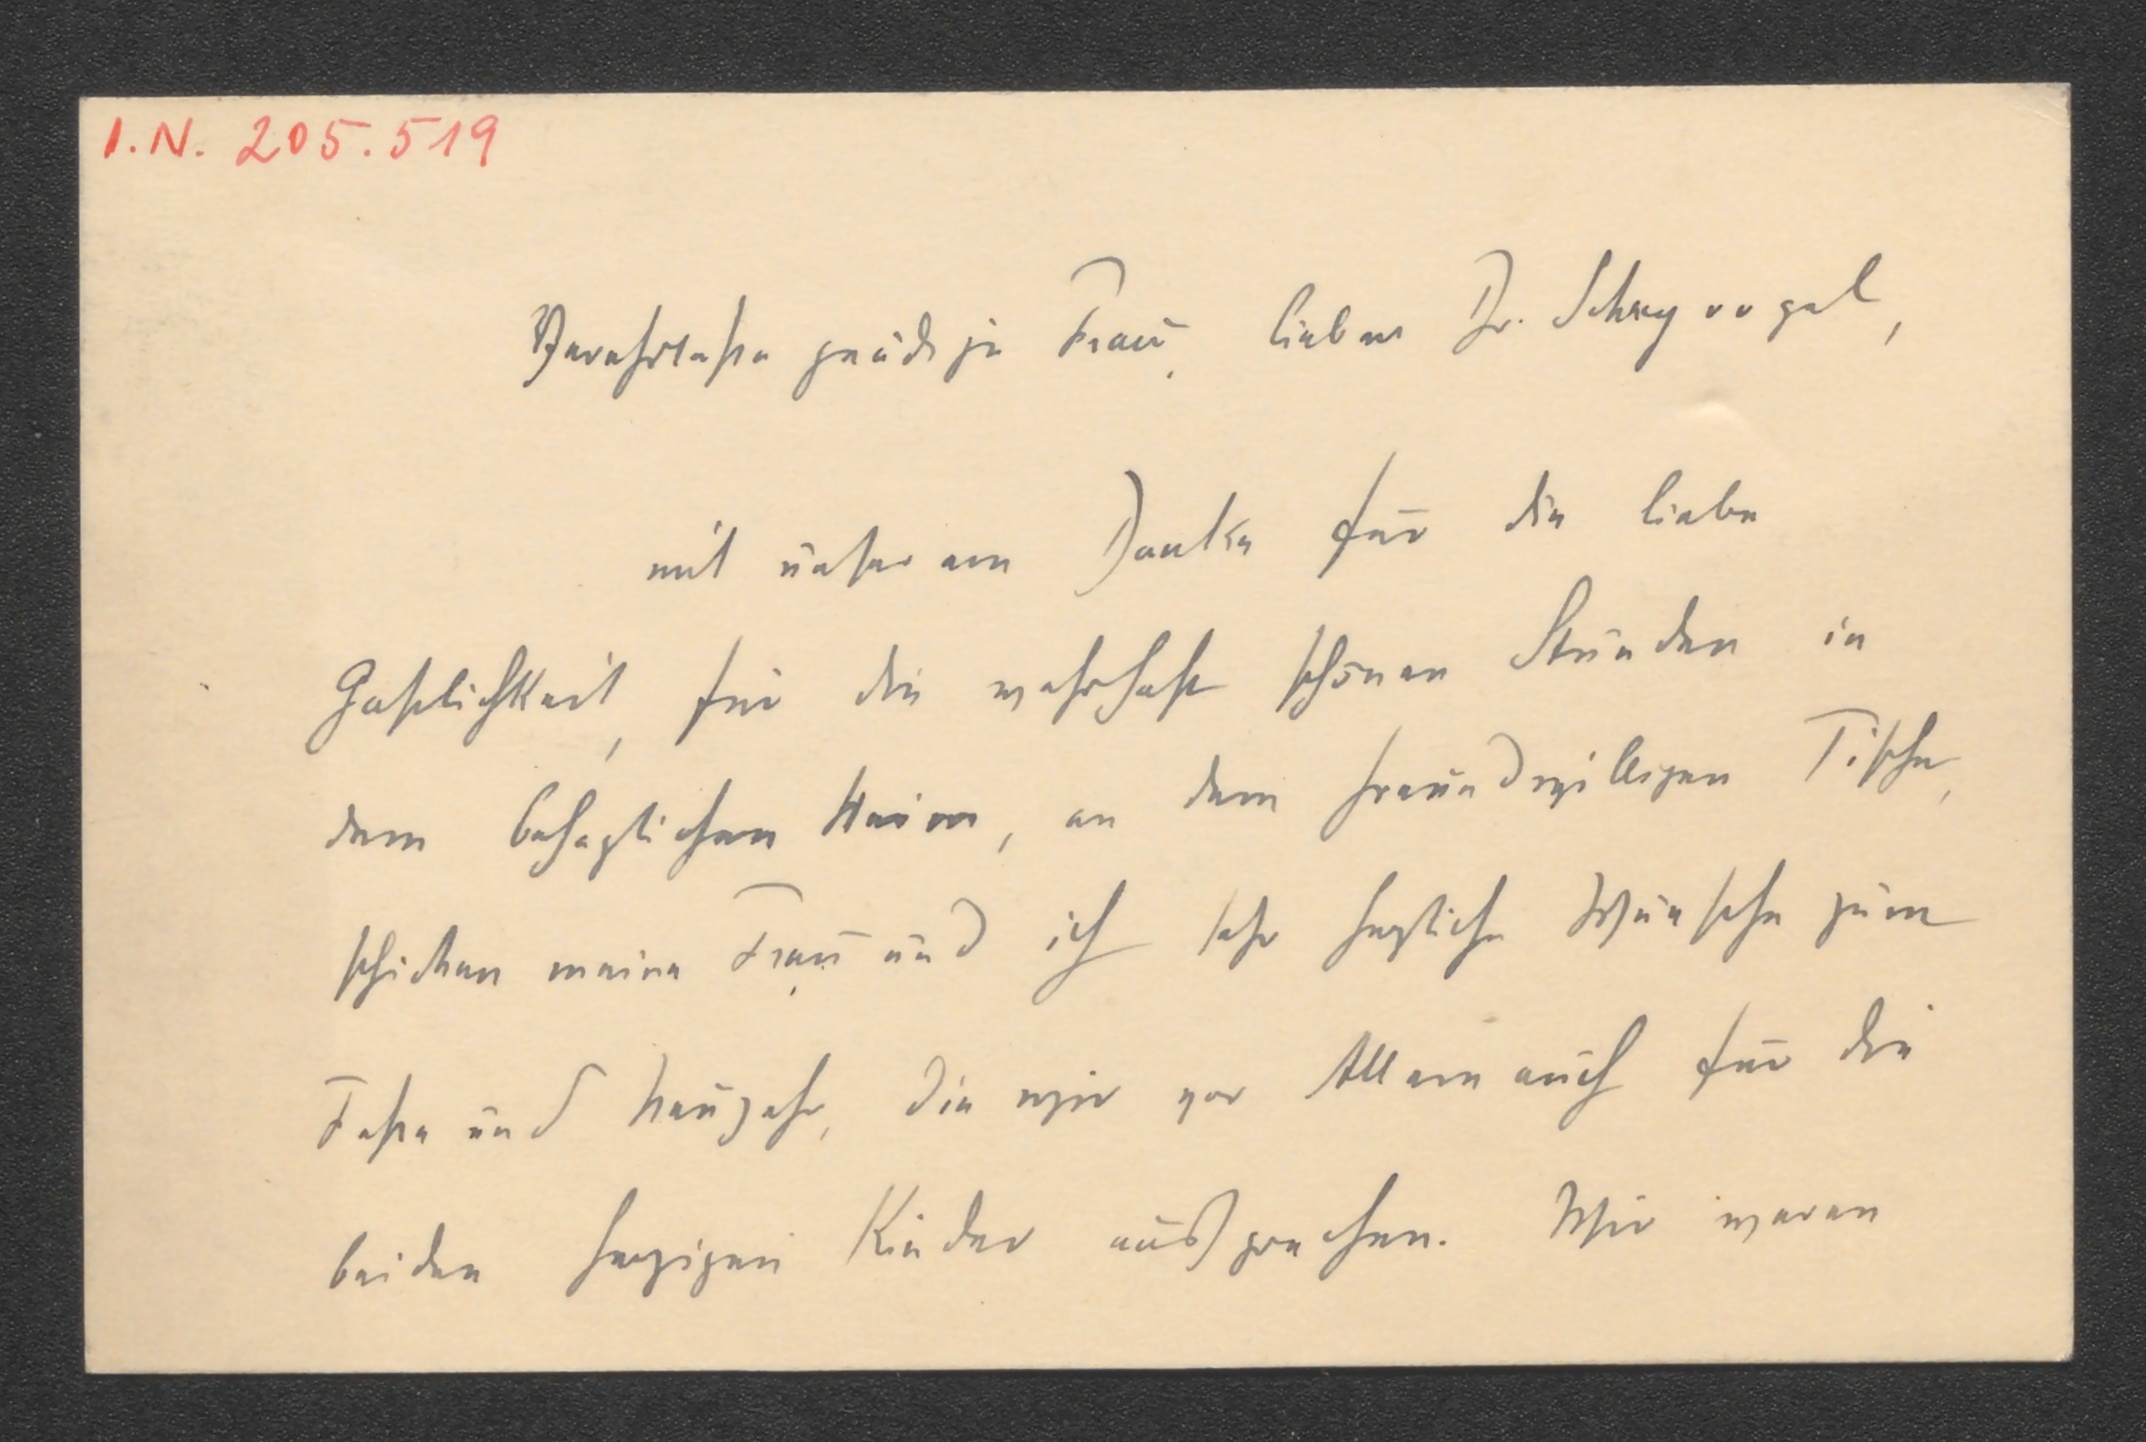 I.N. 205.519
Verehrteste gnädige Frau, lieber Dr. Schreyvogel,
mit unserem Danke für die liebe
Gastlichkeit, für die wahrhaft schönen Stunden in
dem behaglichen Heim, an dem freundwilligen Tische,
schicken meine Frau und ich sehr herzliche Wünsche zum
Feste und Neujahr, die wir vor Allem auch für die
beiden herzigen Kinder aussprechen. Wir waren